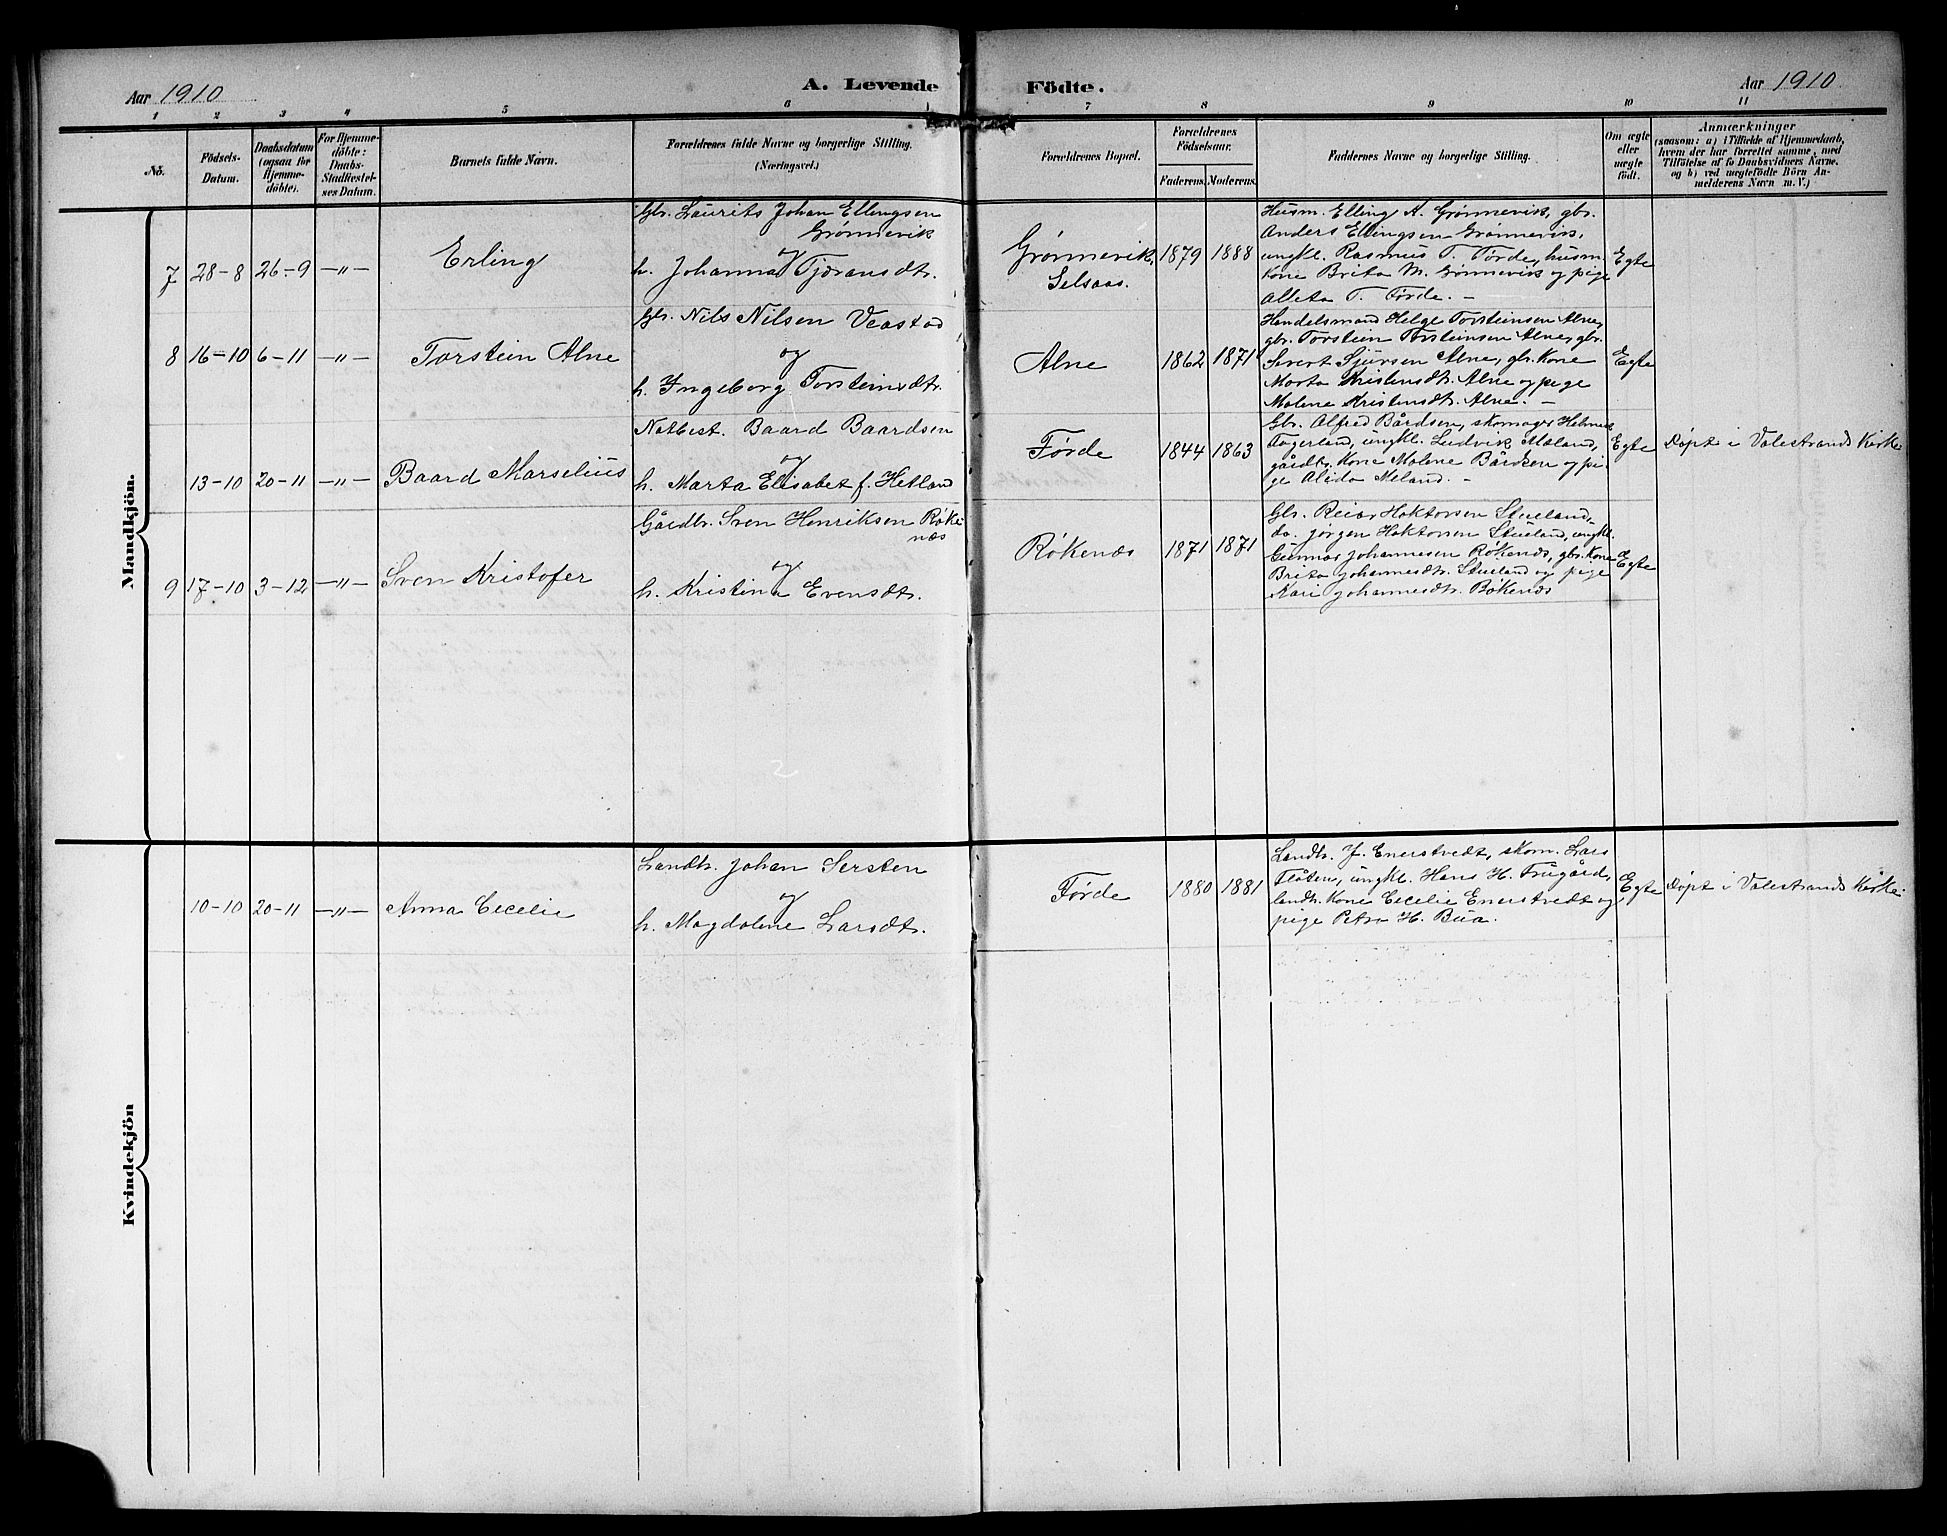 Aar 1910
A. Levende
Födte.
Aar 1910
1 2 3 4 5 6 7 8 9 10 11
No.
Födsels-
Datum.
Daabsdatum
(ogsaa for
Hjemme-
döbte).
For Hjemme-
döbte:
Daabs-
Stadfæstel-
ses Datum.
Barnets fulde Navn.
Forældrenes fulde Navne og borgerlige Stilling.
(Næringsvei.)
Forældrenes Bopæl.
Forældrenes
Födselsaar.
Faderens. Moderens.
Faddernes Navne og borgerlige Stilling.
Om ægte
eller
uægte
födt.
Anmærkninger
(saasom: a) i Tilfælde af Hjemmedaab,
hvem der har forrettet samme, med
Tilföielse af to Daabsvidners Navne.
og b) ved uægtefödte Börn An-
melderens Navn m. V.)
Mandkjön.
7 28-8 26-9 -"- Erling
Gbr. Laurits Johan Ellingsen
Grønnevik
og
h. Johanna Tjøransdt.
Grønnevik,
Selsaas.
1879 1888
Husm. Elling K. Grønnevik, gbr.
Anders Ellingsen Grønnevik,
ungkl. Rasmus T. Førde, husm.
kone Brita M. Grønnevik og pige
Alleta T. Førde. -
Egte
8 16-10 6-11 -"- Torstein Alne
Gbr. Nils Nilsen Veastad
og
h. Ingeborg Torsteinsdt.
Alne
1862 1871
Handelsmand Helge Torsteinsen Alne,
gbr. Torstein Torsteinsen Alne, gbr.
Sivert Sjursen Alne, gbr. kone
Marta Kristensdt. Alne og pige
Malene Kristensdt. Alne. -
Egte
13-10 20-11 -"- Baard Marselius
Notbest. Baard Baardsen
og
h. Marta Elisabet f. Hetland
Førde
1844 1863
Gbr. Alfred Bårdsen, skomager Helmik
Aagerland, ungkl. Ludvik Maland,
gårdbr. kone Malene Bårdsen og pi-
ge Alida Meland. -
Egte
Døpt i Valestrands Kirke
9 17-10 3-12 -"- Sven Kristofer
Gårdbr. Sven Henriksen Røke-
næs
og
h. Kristina Evensdt.
Røkenæs
1871 1871
Gbr. Reiar Haktorsen Stueland,
do. Jørgen Haktorsen Stueland, ungkl.
Gunnar Johannesen Røkenæs, gbr. kone
Brita Johannesdt. Stueland og pige
Kari Johannesdt. Røkenæs
Egte
Kvindekjön
10-10 20-11 -"- Anna Cecelie
Landh. Johan Sersten
og
h. Magdalene Larsdt.
Førde
1880 1881
Landh. J. Enerstvedt, skom. Lars
Flåten, ungkl. Hans H. Frugård,
landh. kone Cecelie Enerstvedt og
pige Petra H. Bua.
Egte
Døpt i Valestrands Kirke.